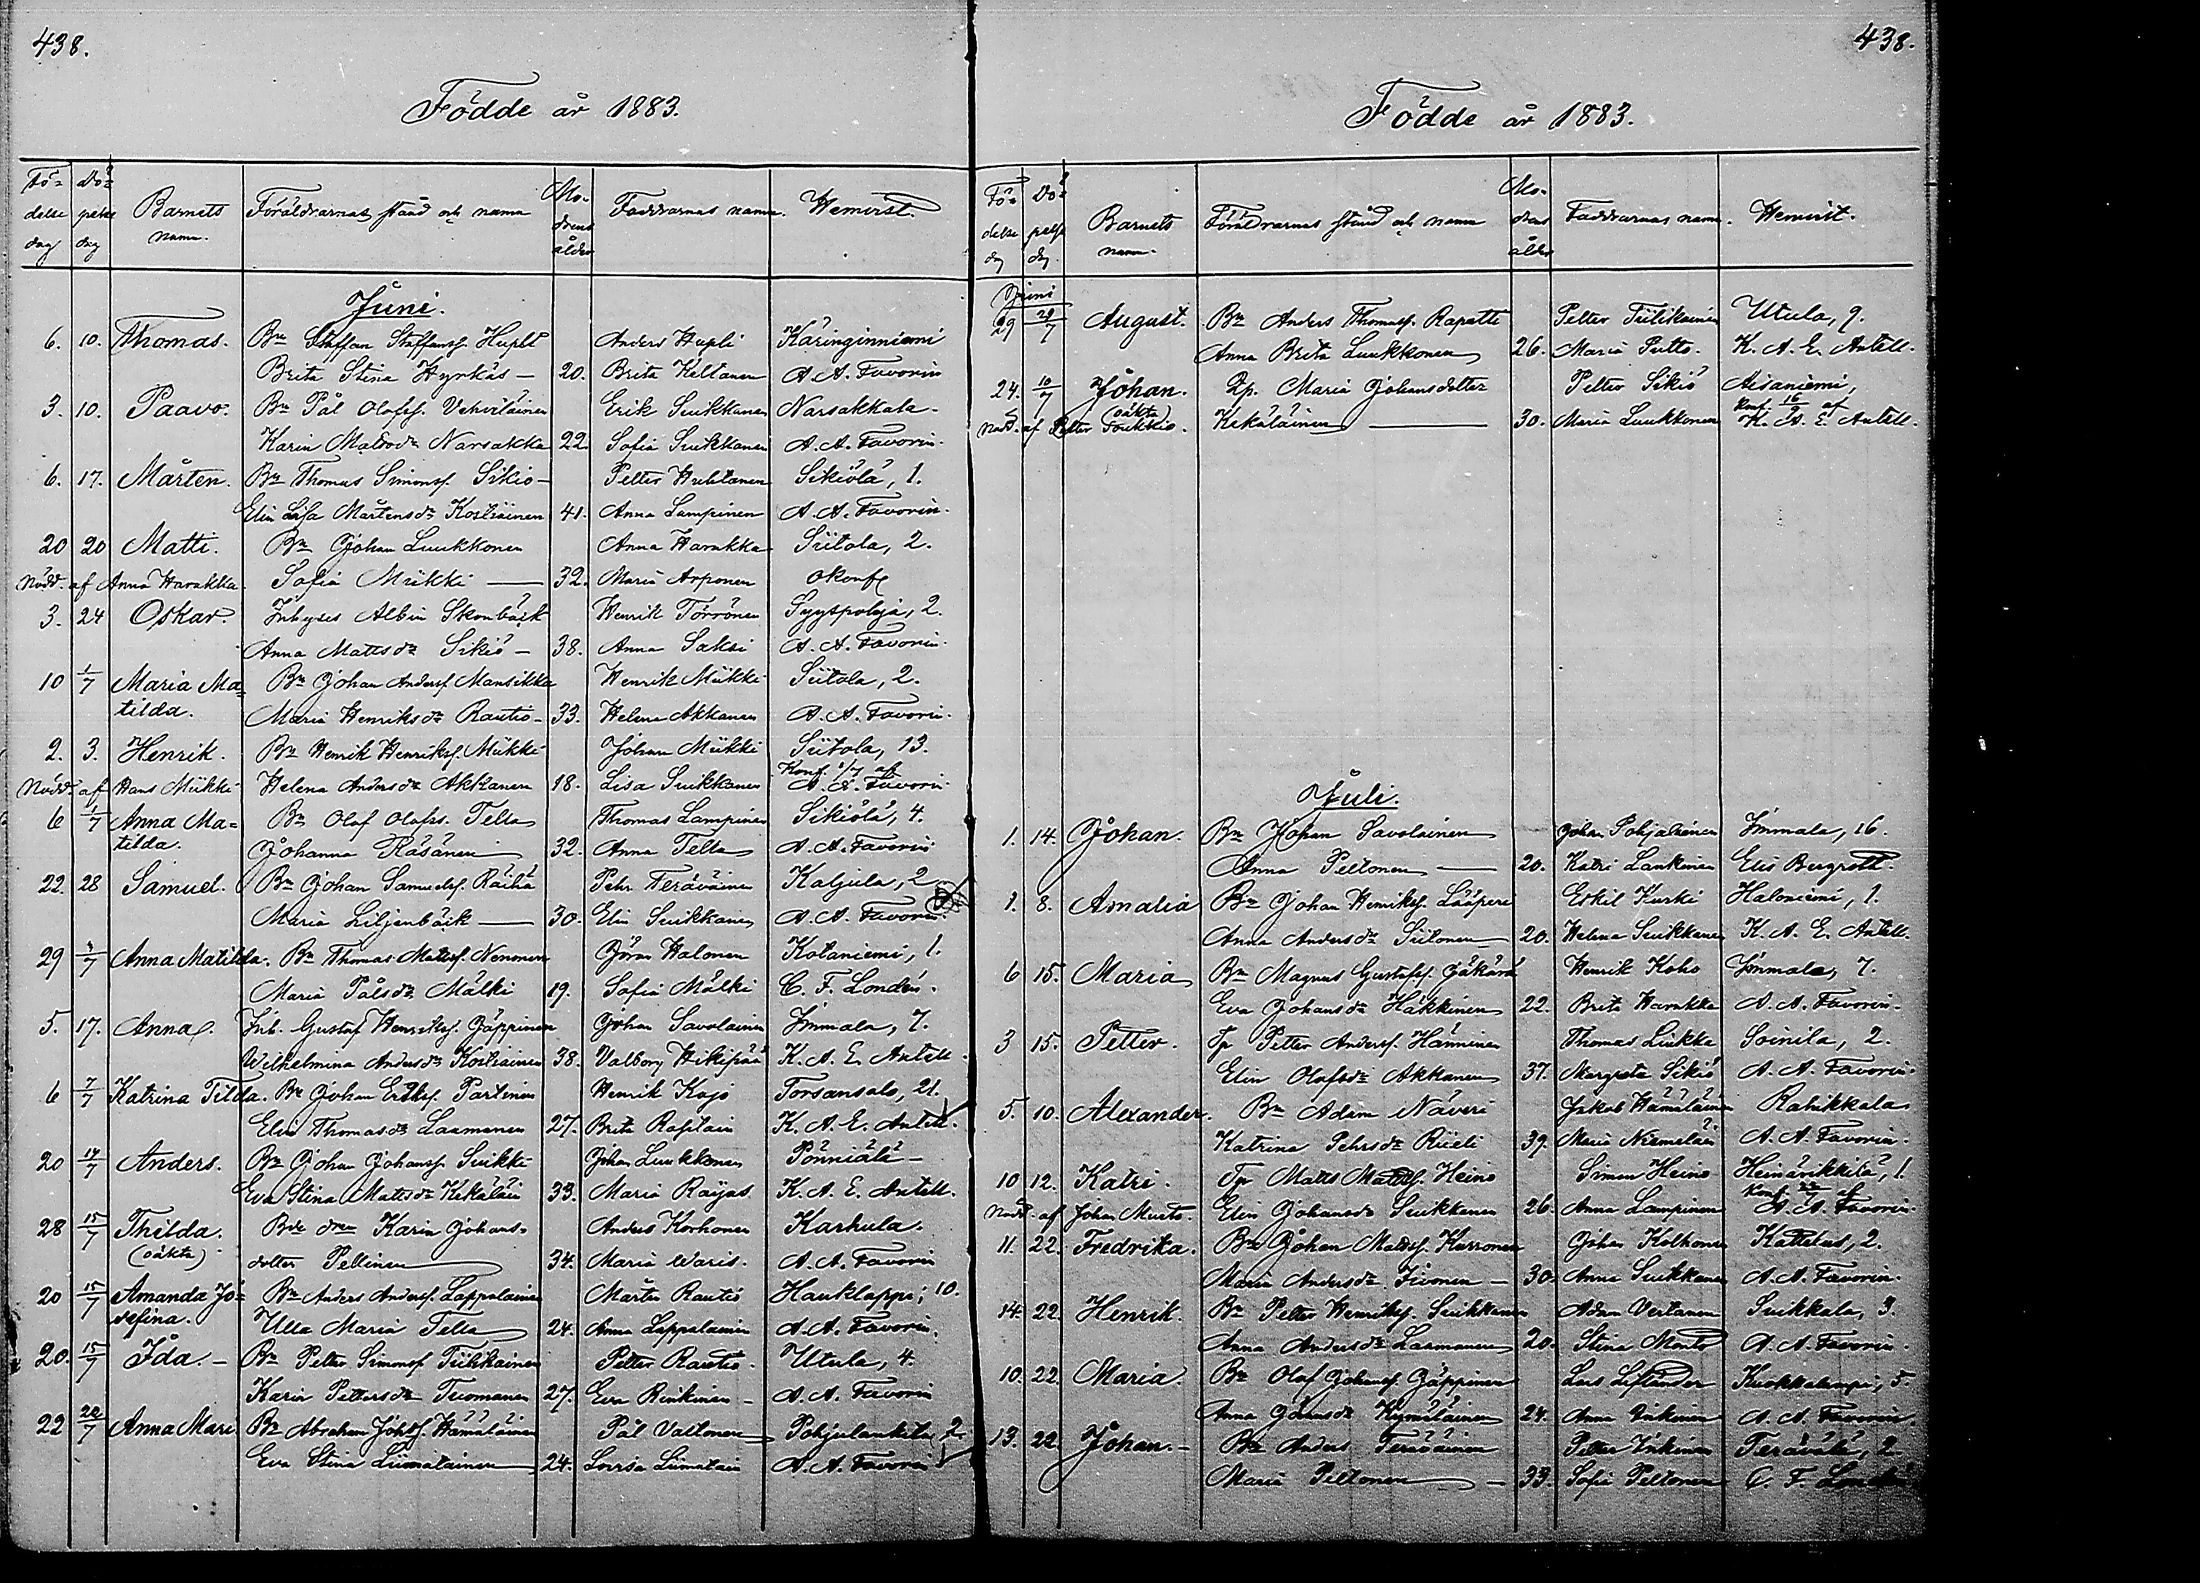 438.
Födde år 1883.
Fö- Dö- Mo-
delse pelse Barnets Föräldrarnas stånd och namn drens Faddrarnas namn. Hemvist.
dag dag namn. ålder
Juni.
6. 10. Thomas. Bn Staffan Staffansf. Hupli Anders Hupli Käringinniemi
Brita Stina Hyrkäs — 20. Brita Keltanen A. A. Favorin
3. 10. Paavo. Bn Pål Olofsf. Vehviläinen Erik Suikkanen Narsakkala.
Karin Matsdr Narsakka 22. Sofia Suikkanen A. A. Favorin.
6. 17. Mårten. Bn Thomas Simonsf. Sikiö — Petter Huhtanen Sikiölä, 1.
Elin Lisa Mårtensdr Kostiainen 41. Anna Lampinen A. A. Favorin.
20 20 Matti. Bn Johan Luukkonen Anna Harakka Siitola, 2.
Nödd. af Anna Harakka. Sofia Miikki — 32. Maria Arponen okonf
3. 24 Oskar. Inhyses Albin Skonbäck Henrik Törrönen Syyspohja, 2.
Anna Matsdr Sikiö — 38. Anna Saksi A. A. Favorin.
10 1/7 Maria Ma- Bn Johan Andersf. Mansikka Henrik Miikki Siitola, 2.
tilda. Maria Henriksdr Rautio — 33. Helena Akkanen A. A. Favorin.
2. 3. Henrik. Bn Henrik Henriksf. Miikki Johan Miikki Siitola, 13.
Konf. 1/7 af
Nödd. af Hans Miikki Helena Andersdr Akkanen 18. Lisa Suikkanen A. A. Favorin.
6 1/7 Anna Ma- Bn Olof Olofss. Tella Thomas Lampinen Sikiölä, 4.
tilda. Johanna Räsänen 32. Anna Tella A. A. Favorin
22. 28 Samuel. Bn Johan Samuelsf. Räihä Pehr Teräväinen Kaljula, 2
Maria Liljenbäck — 30. Elin Suikkanen A. A. Favorin.
29 Anna Matilda. Bn Thomas Matssf. Nenonen Göran Halonen Kotaniemi, 1.
Maria Pålsdr Mälki 19. Sofia Mälki C. F. Londén.
5. 17. Anna. Inh. Gustaf Henriksf. Jäppinen Johan Savolainen Immala, 7.
Wilhelmina Andersdr Kostiainen 38. Valborg Hikipää K. A. E. Antell.
6 7/7 Katrina Tilda. Bn Johan Eriksf. Partinen Henrik Kojo Torsansalo, 21.
Elin Thomasdr Laamanen 27. Brita K. A. E. Antell.
20 14/7 Anders. Bn Johan Johansf. Suikki Johan Luukkonen Pönniälä —
Eva Stina Matsdr Kekäläin 33. Maria Raijas K. A. E. Antell.
28 15/7 Thilda. Bde drn Karin Johans- Anders Korhonen Karhula.
(oäkta) dotter Pellinen 34. Maria Waris. A. A. Favorin
20 15/7 Amanda Jo- Bn Anders Andersf. Lappalainen Mårten Rautio Hauklappi, 10.
sefina. Ulla Maria Tella 24. Anna Lappalainen A. A. Favorin.
20. 15/7 Ida. — Bn Petter Simonsf. Tiilikainen Petter Rautio. Utula, 4.
Karin Pettersdr Tuomanen 27. Eva Rinkinen — A. A. Favorin
22 22/7 Anna Mari Bn Abraham Johsf. Hämäläinen Pål Valtonen Pohjalankila, 2.
Eva Stina Liimatainen 24. Lovisa Liimatain A. A. Favorin
438.
Födde år 1883.
Fö- Dö- Mo-
delse pelse Barnets Föräldrarnas stånd och namn drens Faddrarnas namn. Hemvist.
dag dag namn. ålder
Juni
29 29/7 August. Bn Anders Thomasf. Rapatti Petter Tiilikainen Utula, 9.
Anna Brita Luukkonen 26. Maria Putto. K. A. E. Antell.
24. 10/7 Johan. Qp. Maria Johansdotter Petter Sikiö Aisaniemi,
(oäkta) Konf. 16/7 af
Nödd. af Petter Toukkio. Kekäläinen — 30. Maria Luukkonen K. A. E. Antell.
Juli.
1. 14. Johan. Bn Johan Savolainen Johan Pohjalainen Immala, 16.
Anna Peltonen — 20. Katri Lankinen Elis Bergroth.
1. 8. Amalia Bn Johan Henriksf. Lääperi Eskil Kurki Haloniemi, 1.
Anna Andersdr Siitonen 20. Helena Suikkanen K. A. E. Antell.
6 15. Maria Bn Magnus Gustafsf. Jäkärä Henrik Koho Immala, 7.
Eva Johansdr Häkkinen 22. Brita Harakka A. A. Favorin.
3 15. Petter. Tp Petter Andersf. Hänninen Thomas Liukka Soinila, 2.
Elin Olofsdr Akkanen 37. Margreta Sikiö A. A. Favorin.
5. 10. Alexander. Bn Adam Näveri Jakob Hämäläinen Rahikkala
Katrina Pehrsdr Riieli 39. Maria Niemeläin A. A. Favorin.
10 12. Katri. Tp Matts Matssf. Heino Simon Heino Heinävikkilä, 1.
Konf. 22/7 af
Nödd. af Johan Musto. Elin Johansdr Suikkanen 26. Anna Lampinen A. A. Favorin.
11. 22. Fredrika. Bn Johan Matssf. Karronen Johan Kolhonen Kattelus, 2.
Maria Andersdr Iivonen — 30. Anna Suikkanen A. A. Favorin.
14. 22. Henrik. Bn Petter Henriksf. Suikkanen Adam Vertanen Suikkala, 3.
Anna Andersdr Laamanen 20. Stina Monto A. A. Favorin.
10. 22. Maria Bn Olof Johansf. Jäppinen Lars Lifländer Kuokkalampi, 5.
Anna Johansdr Kymäläinen 24. Anna Inkinen A. A. Favorin.
13. 22 Johan. — Bn Anders Teräväinen Petter Inkinen Terävälä, 2
Maria Peltonen — 33. Sofia Peltonen C. F. Londén